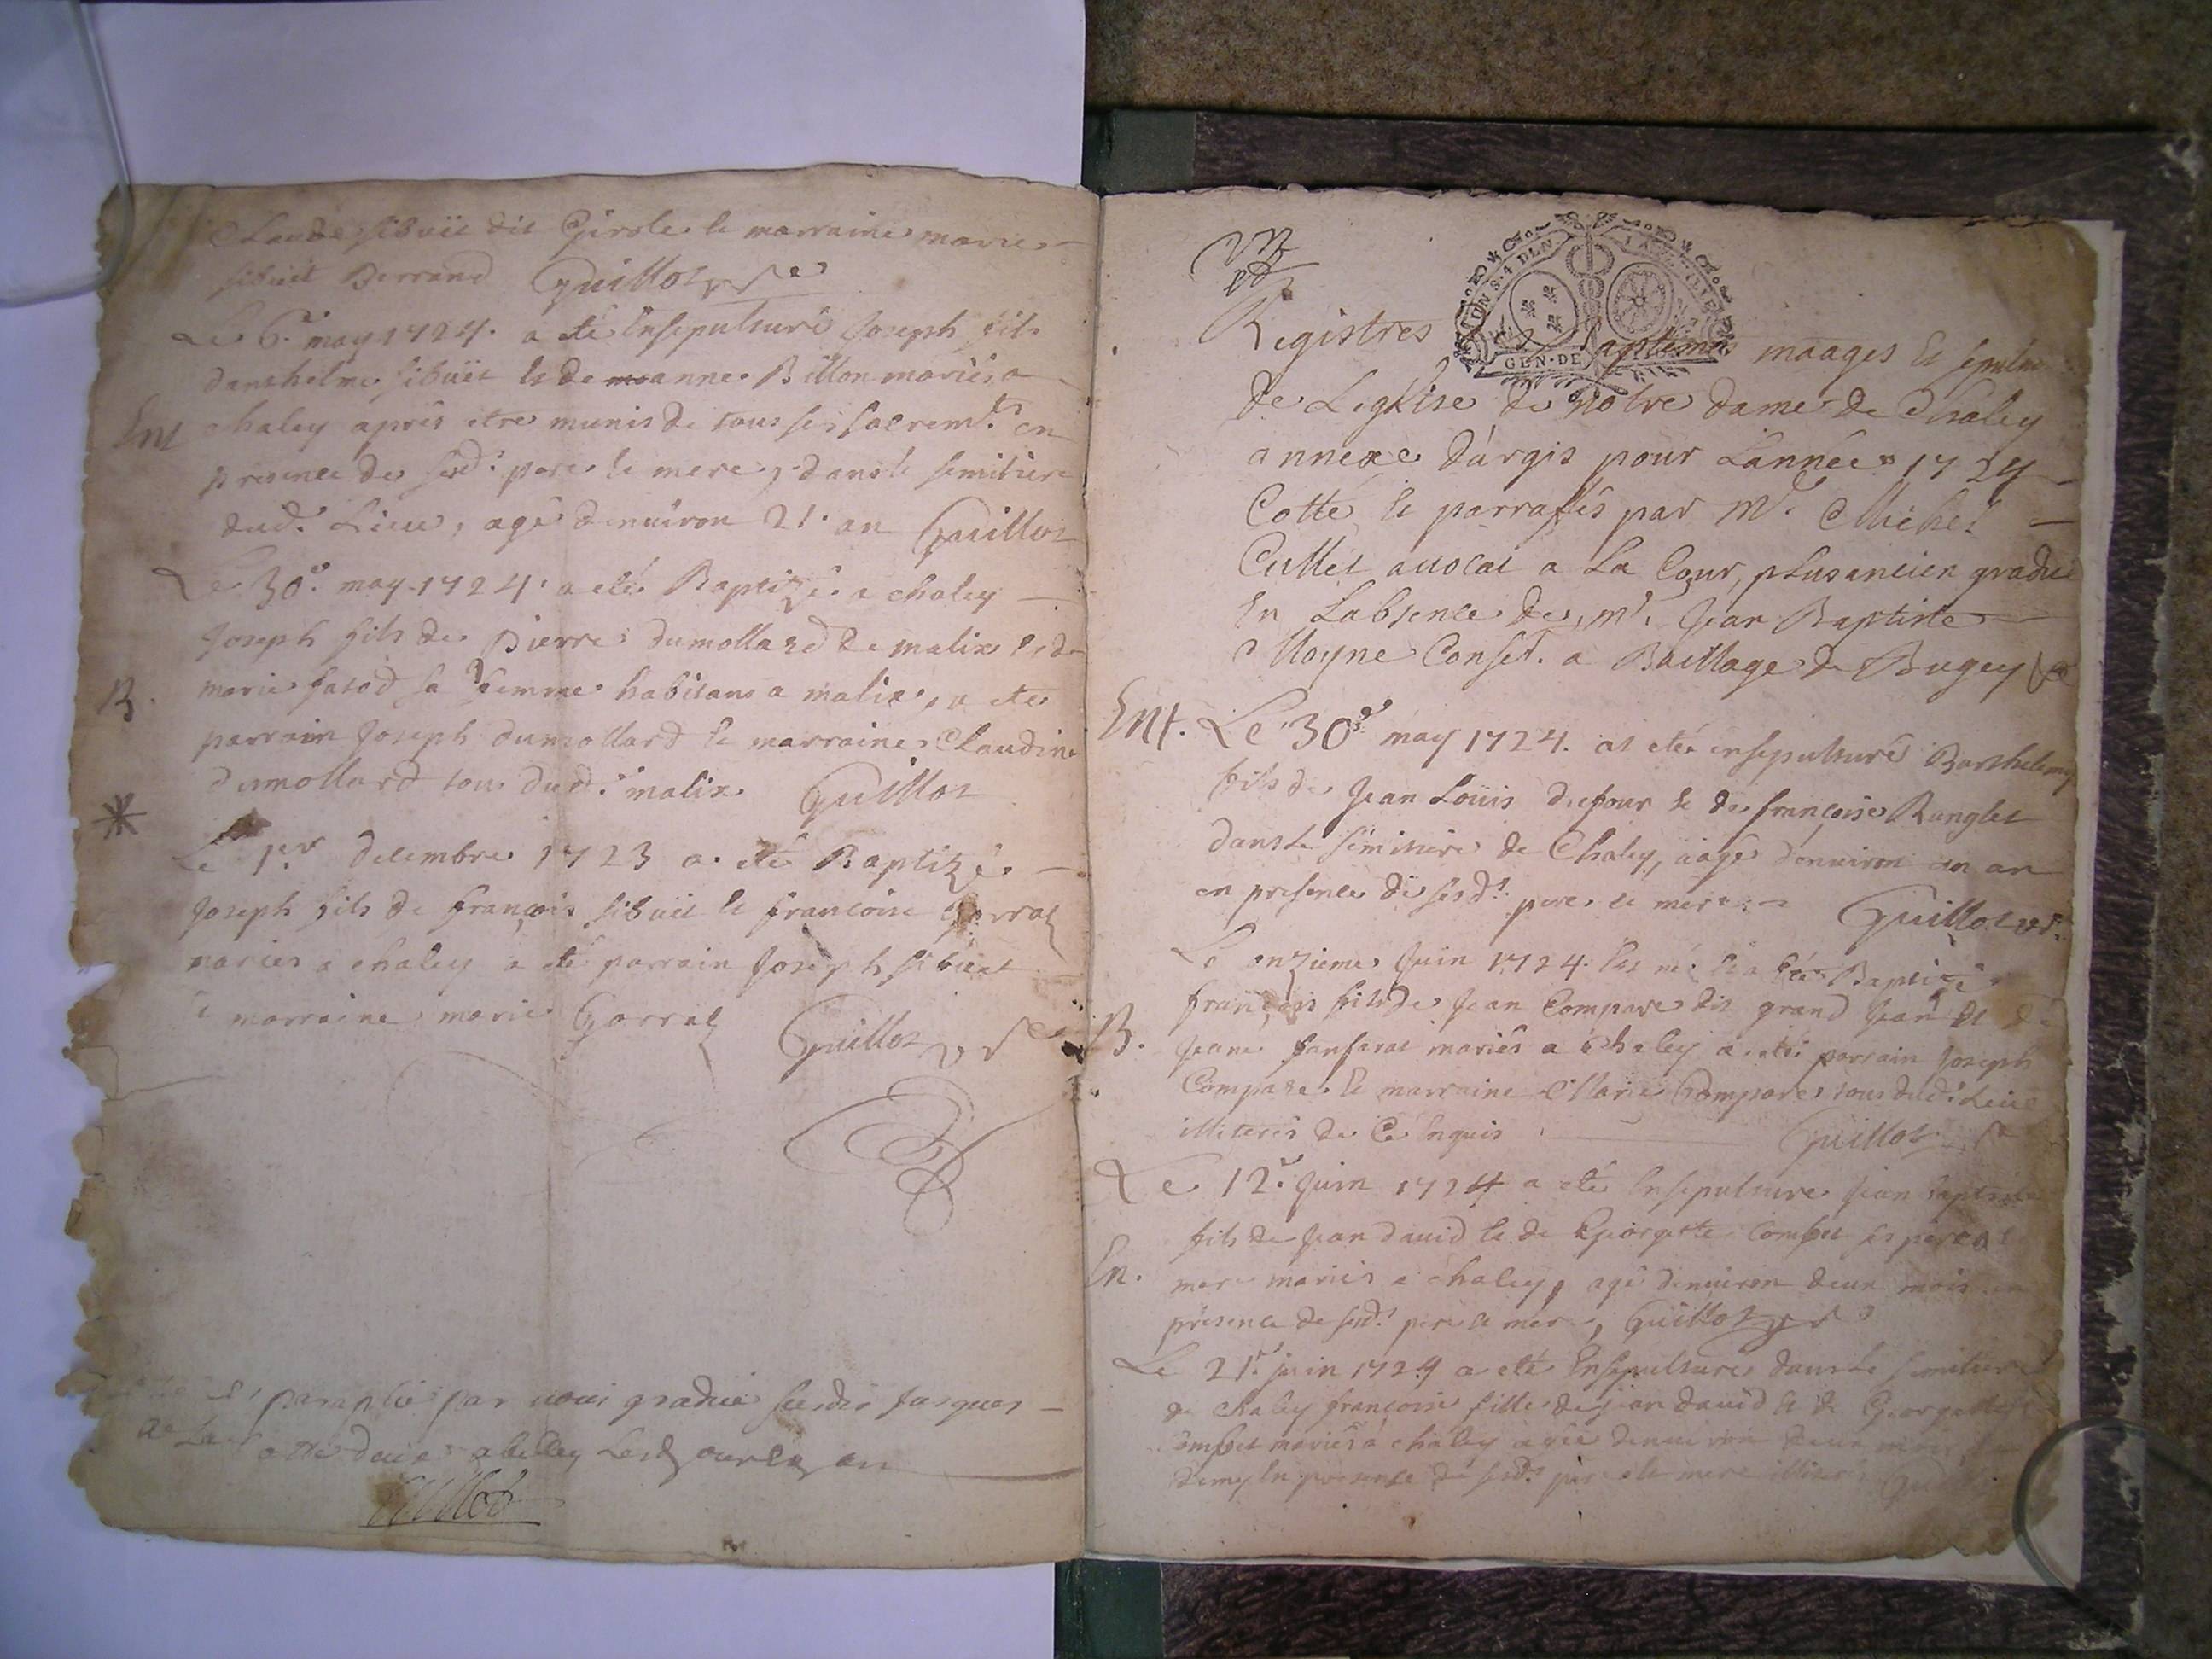 Claude sibuët dit Girole le marraine marie
sibuët Berrand Guillot
Le 6.e may 1724. a été Ensepulturé Joseph fils
danthelme sibuët et de anne Billon mariés a
Ent chaley après etre munis de tous ses sacremts. en
presence de sesd. pere et mere, dans le semitiere
dud. Lieu, agé denuiron 21. an Guillot
Le 30.e may 1724. a eté Baptizé a chaley
Joseph fils de Pierre dumollard de malix et de
B. marie fatod sa femme habitans a malix, a eté
parrain Joseph dumollard le marraine Claudine
dumollard tous dud. malix Guillot
Le 1.er decembre 1723 a eté Baptizé
Joseph fils de françois sibuët et francoise Garral
mariés a chaley a eté parrain Joseph sibuet
marraine marie Garral Guillot
paraphé par nous gradué susdit Jusques
a belley
Cullet
Registres Baptêmes maages Et sepultu
de Léglise de notre dame de Chaley
annexe dárgis pour Lannée 1724
Cotté le parraffés par Mr. Michel
Cullet auocat a La Cour, plusancien gradué
En Labsence de mr. Jean Baptiste
Moyne Conser. a Baillage de Bugey
Ent. Le 30.e may 1724. at eté ensepulturé Barthelemy
fils de Jean Loüis dufour le de françoise Ranglet
dans le semitiere de Chaley, aagé denuiron un an
en presence de sesd. pere le mere Guillot
Le onzieme Juin 1724. Est né le a été Baptizé
françois fils de Jean Compare dit grand Jean Et de
B. Jeane fanfarat mariés a Chaley a eté parrain Joseph
Compare le marraine Marie Compare tous dud. Lieu
illiterés de Ce Enquis Guillot
Le 12.e Juin 1724 a eté Ensepulturé Jean baptiste
fils de Jean dauid le de Georgette Combet ses pere et
En. mere mariés a chaley, agé denuiron deux mois en
présence de sesd. pere le mere, Guillot
Le 21.e juin 1724 a eté Ensepulturé dans le semitiere
de chaley françoise fille de jean dauid le de Georgette
Combet mariés a chaley agée denuiron deux mois
demy En presence de sesd. pere le mere illiterés
GEN·DE